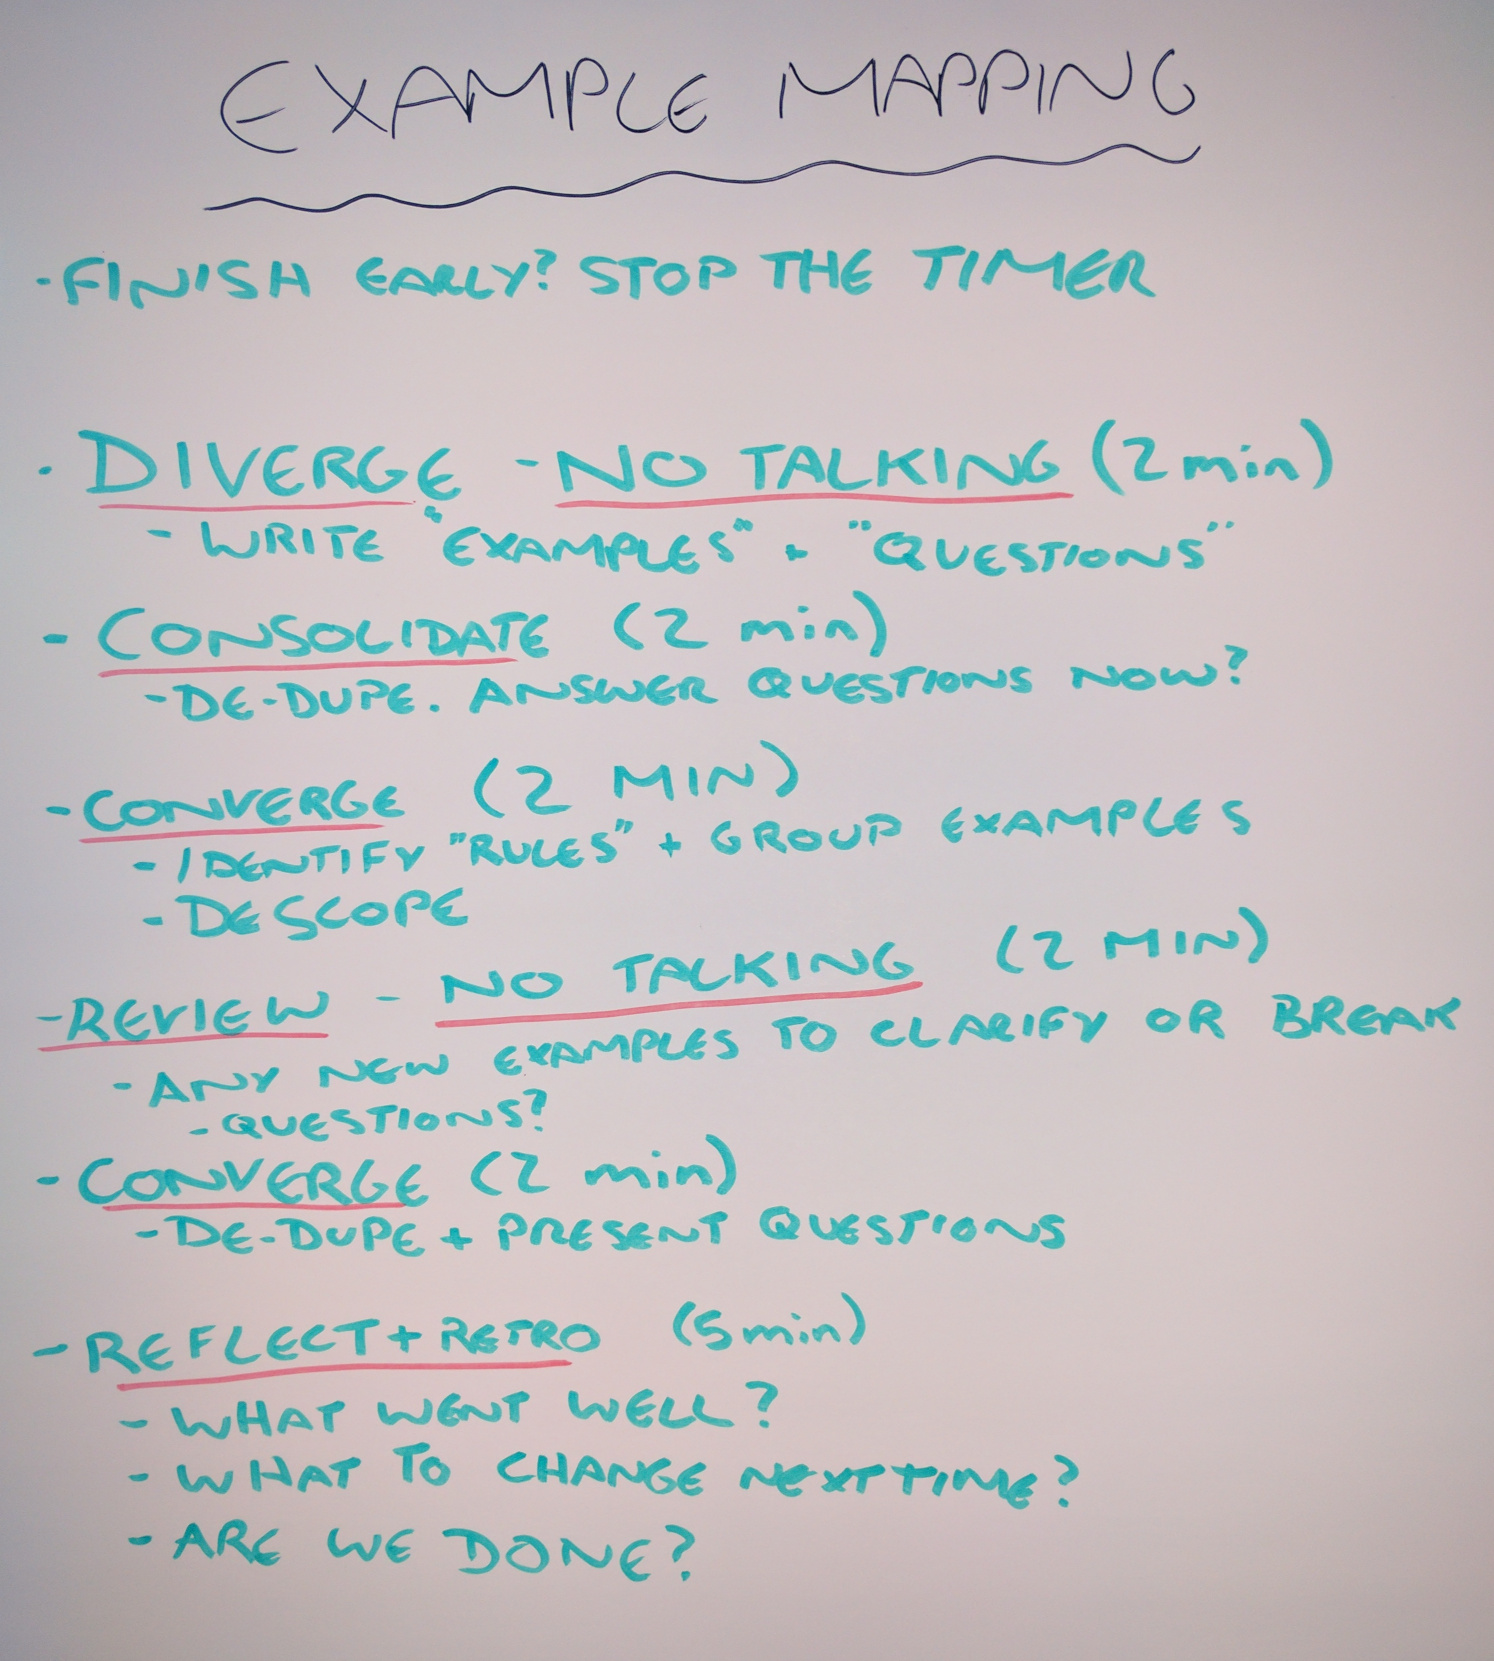 EXAMPLE MAPPING
- FINISH EARLY? STOP THE TIMER
- DIVERGE - NO TALKING (2 min)
- WRITE "EXAMPLES" + "QUESTIONS"
- CONSOLIDATE (2 min)
- DE-DUPE. ANSWER QUESTIONS NOW?
- CONVERGE (2 MIN)
- IDENTIFY "RULES" + GROUP EXAMPLES
- DESCOPE
- REVIEW - NO TALKING (2 MIN)
- ANY NEW EXAMPLES TO CLARIFY OR BREAK
- QUESTIONS?
- CONVERGE (2 min)
- DE-DUPE + PRESENT QUESTIONS
- REFLECT + RETRO (5 min)
- WHAT WENT WELL?
- WHAT TO CHANGE NEXT TIME?
- ARE WE DONE?